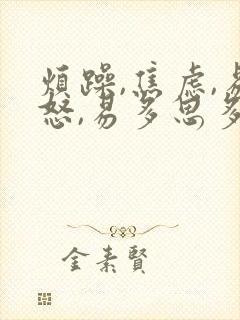 煩躁,焦虑,易
怒,易多思多
金素賢